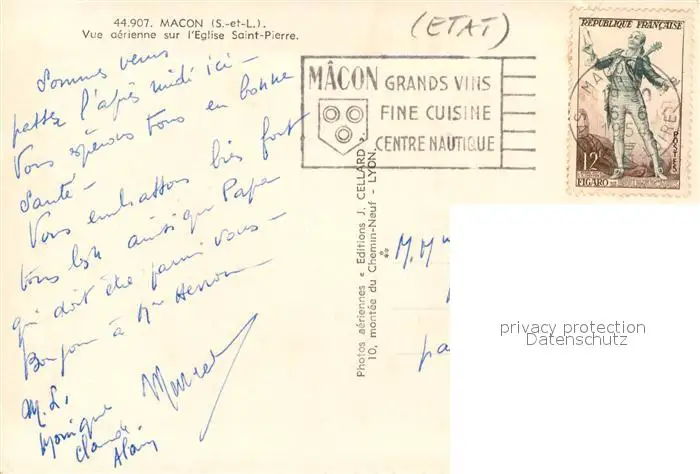 44.907. MACON (S.-et-L.).
Vue aérienne sur l'Eglise Saint-Pierre.
(ETAT)
Sommes venus
passer l'après midi ici -
Vous espérons tous en bonne
santé -
Vous embrassons bien fort
tous les ainsi que Papa
qui doit être parmi vous -
Bonjour à Mme
M. L.
Monique
Claude
Alain
MÂCON GRANDS VINS
FINE CUISINE
CENTRE NAUTIQUE
REPUBLIQUE FRANÇAISE
POSTES
12F
FIGARO
MACON
Photos aériennes « Editions J. CELLARD »
10, montée du Chemin-Neuf - LYON.
M. Mm
pa
privacy protection
Datenschutz